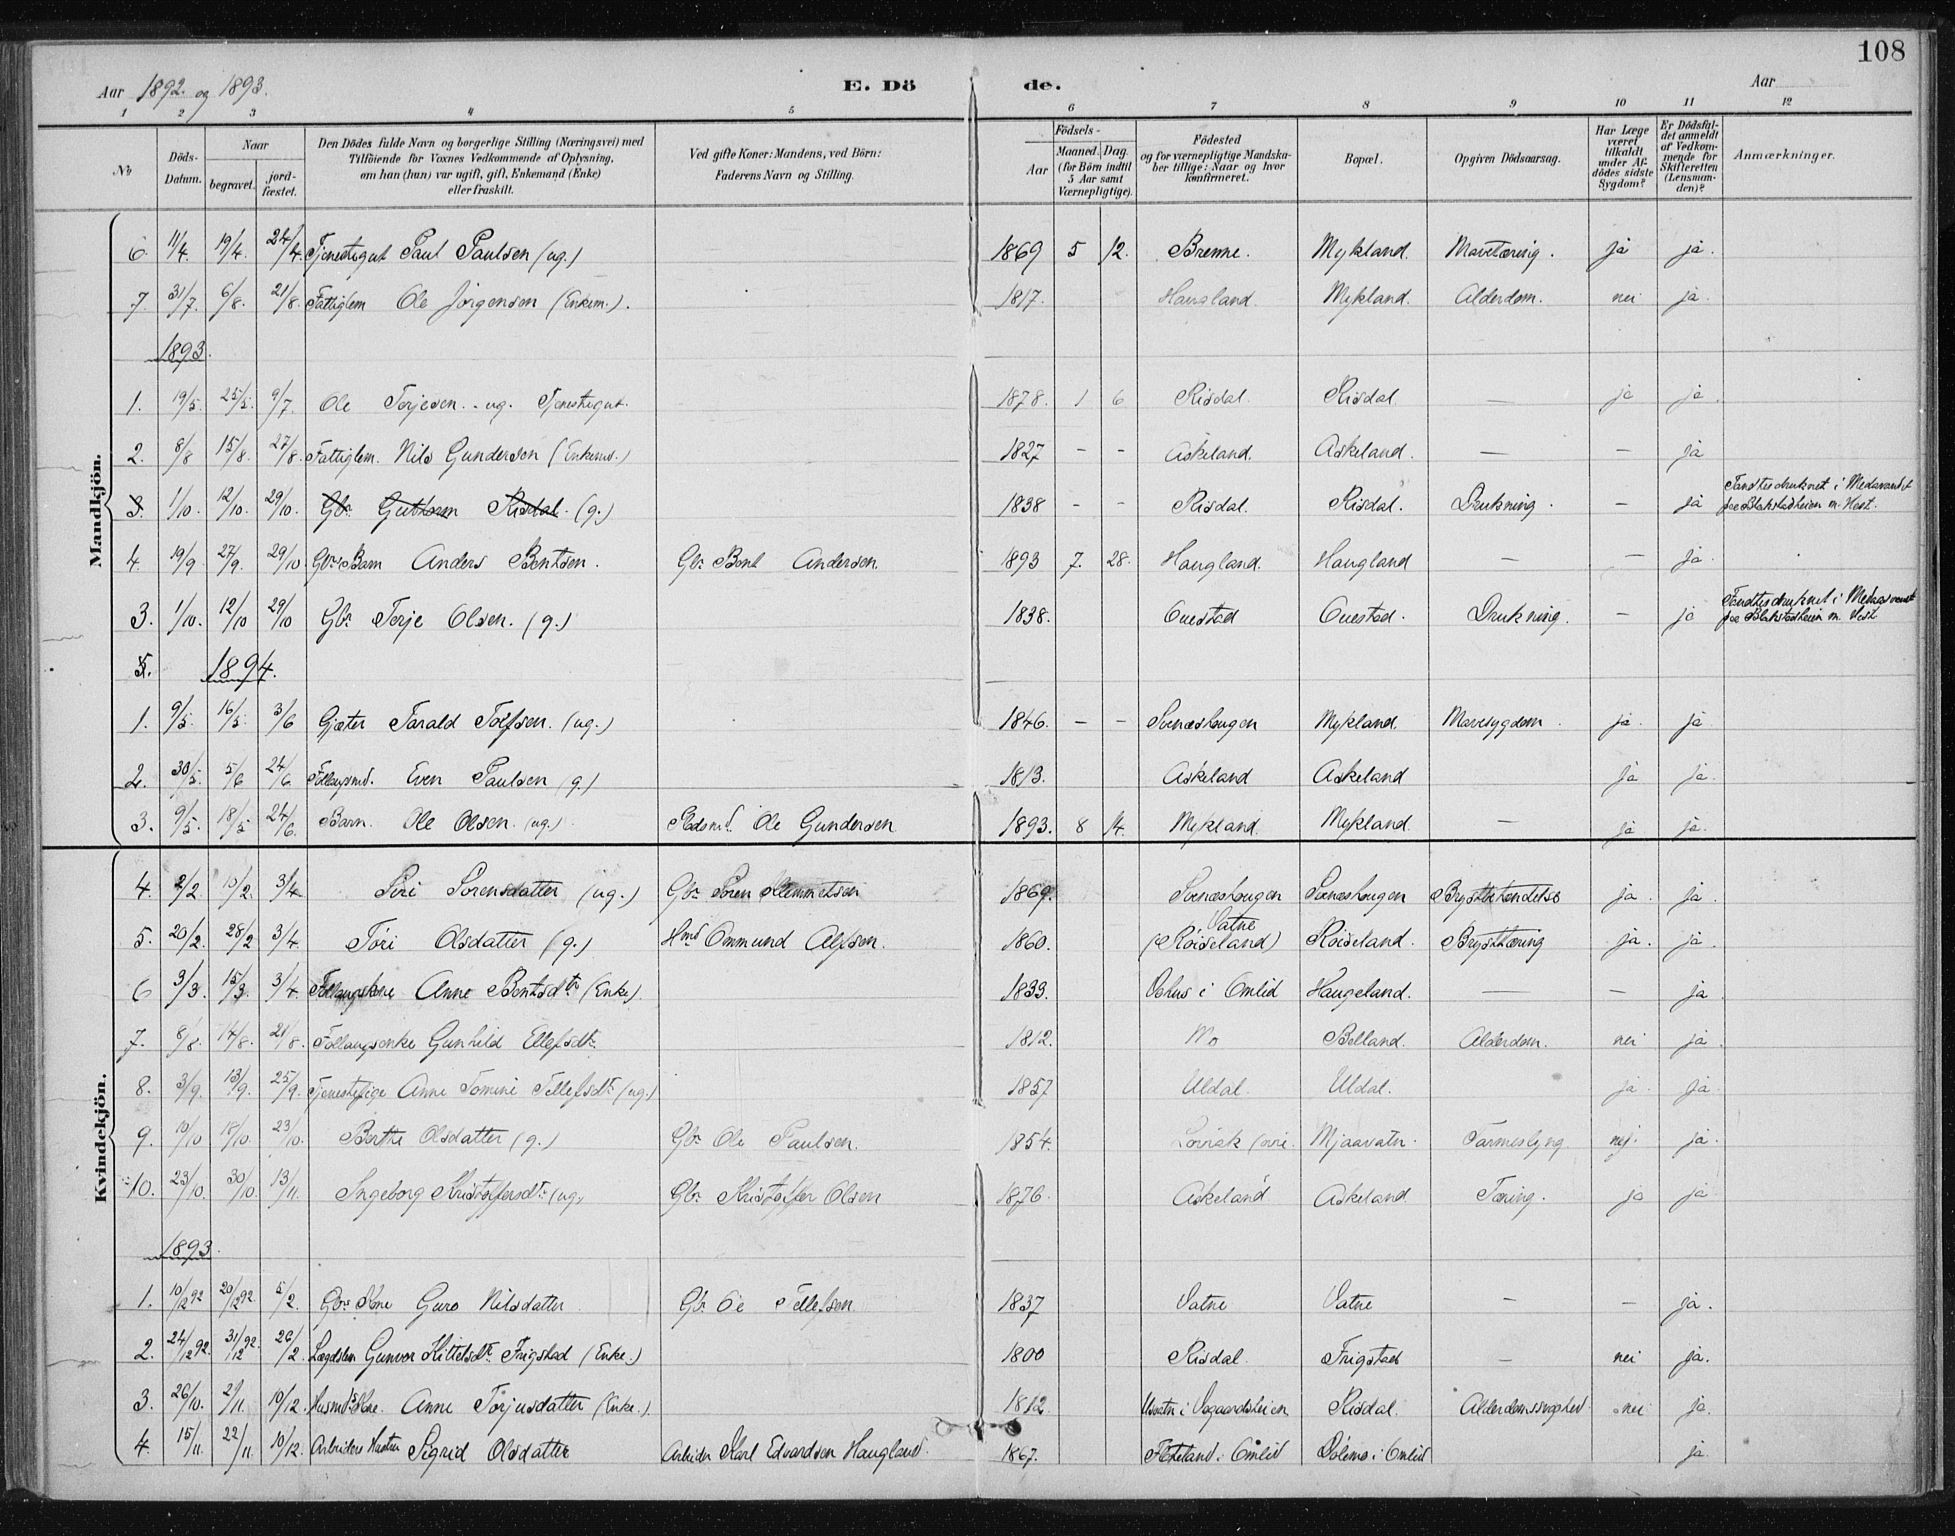 108
Aar 1892 og 1893.
E. Dö de.
Aar
1 2 3 4 5 6 7 8 9 10 11 12
No
Döds-Datum.
Naar
begravet.
jord-fæstet.
Den Dödes fulde Navn og borgerlige Stilling (Næringsvei) med
Tilföiende for Voxnes Vedkommende af Oplysning,
om han (hun) var ugift, gift, Enkemand (Enke)
eller fraskilt.
Ved gifte Koner: Mandens, ved Börn:
Faderens Navn og Stilling.
Födsels-
Aar
Maaned. Dag.
(for Börn indtil
5 Aar samt
Værnepligtige).
Födested
og for værnepligtige Mandska-
ber tillige: Naar og hvor
konfirmeret.
Bopæl.
Opgiven Dödsaarsag.
Har Læge
været
tilkaldt
under Af-
dödes sidste
Sygdom?
Er Dödsfal-
det anmeldt
af Vedkom-
mende for
Skifteretten
(Lensman-
den)?
Anmærkninger.
Mandkjön.
6. 11/4. 19/4. 24/4. Tjenestegut Paul Paulsen (ug.) 1869 5 12. Bremne. Mykland. Mavetæring. ja ja.
7. 31/7. 6/8. 21/8. Fattiglem Ole Jörgensen (Enkem.). 1817. Haugland. Mykland. Alderdom. nei ja.
1893.
1. 19/5. 25/5. 9/7. Ole Terjesen. ug. Tjenestegut. 1878. 1 6 Risdal. Risdal. — ja ja.
2. 8/8 15/8. 27/8. Fattiglem. Nils Gunderson (Enkem.) 1827 - - Askeland. Askeland. — — ja
3. 1/10. 12/10. 29/10. Gbr. Guthorm Risdal. (g.) 1838 - - Risdal. Risdal. Drukning. — ja Fandtes druknet i Medavandet
paa Blakstadheien m. Hest.
4. 19/9 27/9. 29/10 Gbrs Barn Anders Bentsen. Gbr. Bent Andersen. 1893 7. 28. Haugland. Haugland — — ja.
3. 1/10. 12/10 29/10 Gbr. Terje Olsen. (g.) 1838. Ouestad Ouestad. Drukning. — ja Fandtes druknet i Medavandet
paa Blakstadheien m. Hest.
5. 1894.
1. 9/5. 16/5. 3/6 Gjæter Tarald Tolfsen. (ug.) 1846. - - Svenæshougen Mykland. Mavesygdom. ja. ja
2. 30/5. 5/6 24/6. Even Paulsen (g.) 1813. Askeland Askeland — ja ja.
3. 9/5. 18/5 24/6. Barn. Ole Olsen. (ug.) Ole Gundersen 1893. 8 14. Mykland. Mykland. — ja ja.
Kvindekjön.
4. 2/2. 10/2. 3/4. Siri Sorensdatter (ug.) Gbr. Sören Klemmetsen 1869. Svenæshougen Svenæshougen Brystbetændelse ja. ja.
5. 20/2. 28/2 3/4. Töri Olsdatter (g.) Hmd Ommund Alfsen. 1860. Vatne
(Röiseland) Röiseland. Brysttæring ja. ja.
6 3/3. 15/3. 3/4. Anne Bentsdtr (Enke) 1833. i Omlid Haugeland. — — ja
7. 8/8. 14/8. 21/8. Follaugsenke Gunhild Ellefsdtr. 1812. Mo Belland. Alderdom. nei ja.
8. 3/9. 13/9. 25/9. Tjenestepige Anne Tomine Tellefsdtr. (ug.) 1857 Uldal. Uldal. ja ja.
9. 10/10 18/10. 23/10. Berthe Olsdatter (g.) Gbr. Ole Paulsen. 1854. Mjaavatn. Tarmeslyng nej. ja.
10. 23/10. 30/10. 13/11. Ingeborg Kristoffersdtr. (ug.) Gbr. Kristoffer Olsen 1876. Askeland Askeland. Tæring. ja ja
1893.
1. 10/12 92 20/12 92. 5/2. Gbrs Kone Guro Nilsdatter Gbr. Ole Tellefsen 1837 Vatne Vatne — — ja.
2. 24/12 92. 31/12 92. 26/2. Lægdslem Gunvor Kittelsdtr. Frigstad (Enke.) 1800 Risdal. Frigstad — nei ja.
3. 26/10. 2/11. 10/12. Husmds Kone. Anne Terjusdatter (Enke.). 1812. i Vegaardsheien Risdal. Alderdomssvaghed. nei ja.
4. 15/11. 22/11. 10/12. Arbeiders Hustru Sigrid Olsdatter Arbeider Karl Edvardsen Haugland. 1867. i Omlid Dölemo i Omlid ja